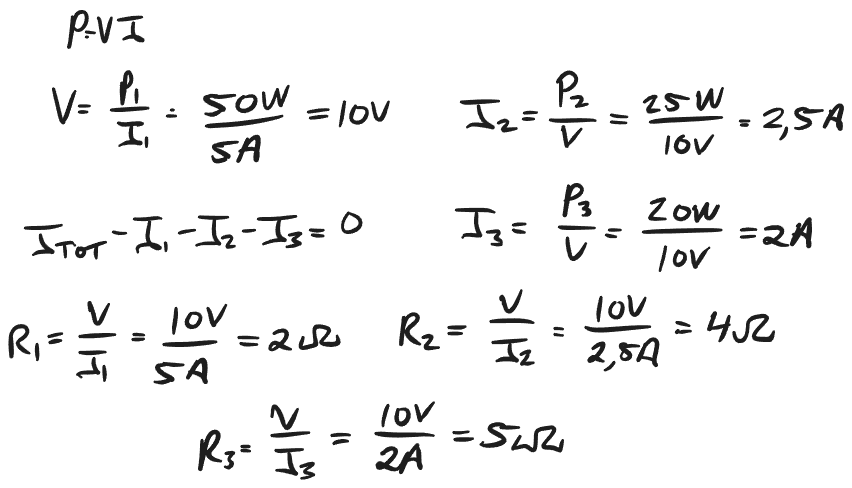 P=VI
V= P₁/I₁ = 50W/5A = 10V
I₂ = P₂/V = 25W/10V = 2,5A
I_TOT - I₁ - I₂ - I₃ = 0
I₃ = P₃/V = 20W/10V = 2A
R₁ = V/I₁ = 10V/5A = 2Ω
R₂ = V/I₂ = 10V/2,5A = 4Ω
R₃ = V/I₃ = 10V/2A = 5Ω